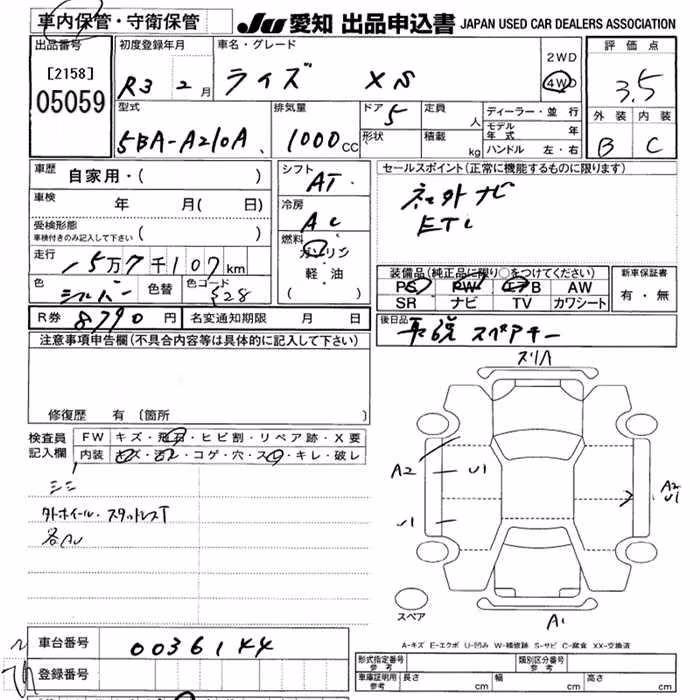 車内保管・守衛保管 JU 愛知 出品申込書 JAPAN USED CAR DEALERS ASSOCIATION
出品番号 初度登録年月 車名・グレード 評価点
[2158] R3 2月 ライズ XS 2WD 4WD 3.5
05059 型式 排気量 ドア 5 定員 人 ディーラー・並行 外装 内装
5BA-A210A 1000cc 形状 積載 kg モデル年式 年 B C
ハンドル 左・右
車歴 自家用・( ) シフト AT セールスポイント(正常に機能するものに限ります)
車検 年 月(日) 冷房 AC 社外ナビ
受検形態 車検付きのみ記入して下さい ( ) ETC
走行 15万7千107km 燃料 ガソリン 軽・油 ( )
装備品(純正品に限り○をつけてください) 新車保証書
色 シルバー 色替 色コード S28 PS PW エアB AW 有・無
SR ナビ TV カワシート
R券 8790円 名変通知期限 月 日 後日品 取説 スペアキー
注意事項申告欄(不具合内容等は具体的に記入して下さい)
修復歴 有(箇所 )
検査員記入欄 FW キズ・飛石・ヒビ割・リペア跡・X要
内装 キズ・汚れ・コゲ・穴・スレ・キレ・破レ
シミ
各AU
A2 U1
U1
A2
U1
スペア A1
A-キズ E-エクボ U-凹み W-補修跡 S-サビ C-腐食 XX-交換済
車台番号 0036144
登録番号
形式指定番号 参考 類別区分番号 参考
車庫証明用 参考 長さ cm 幅 cm 高さ cm